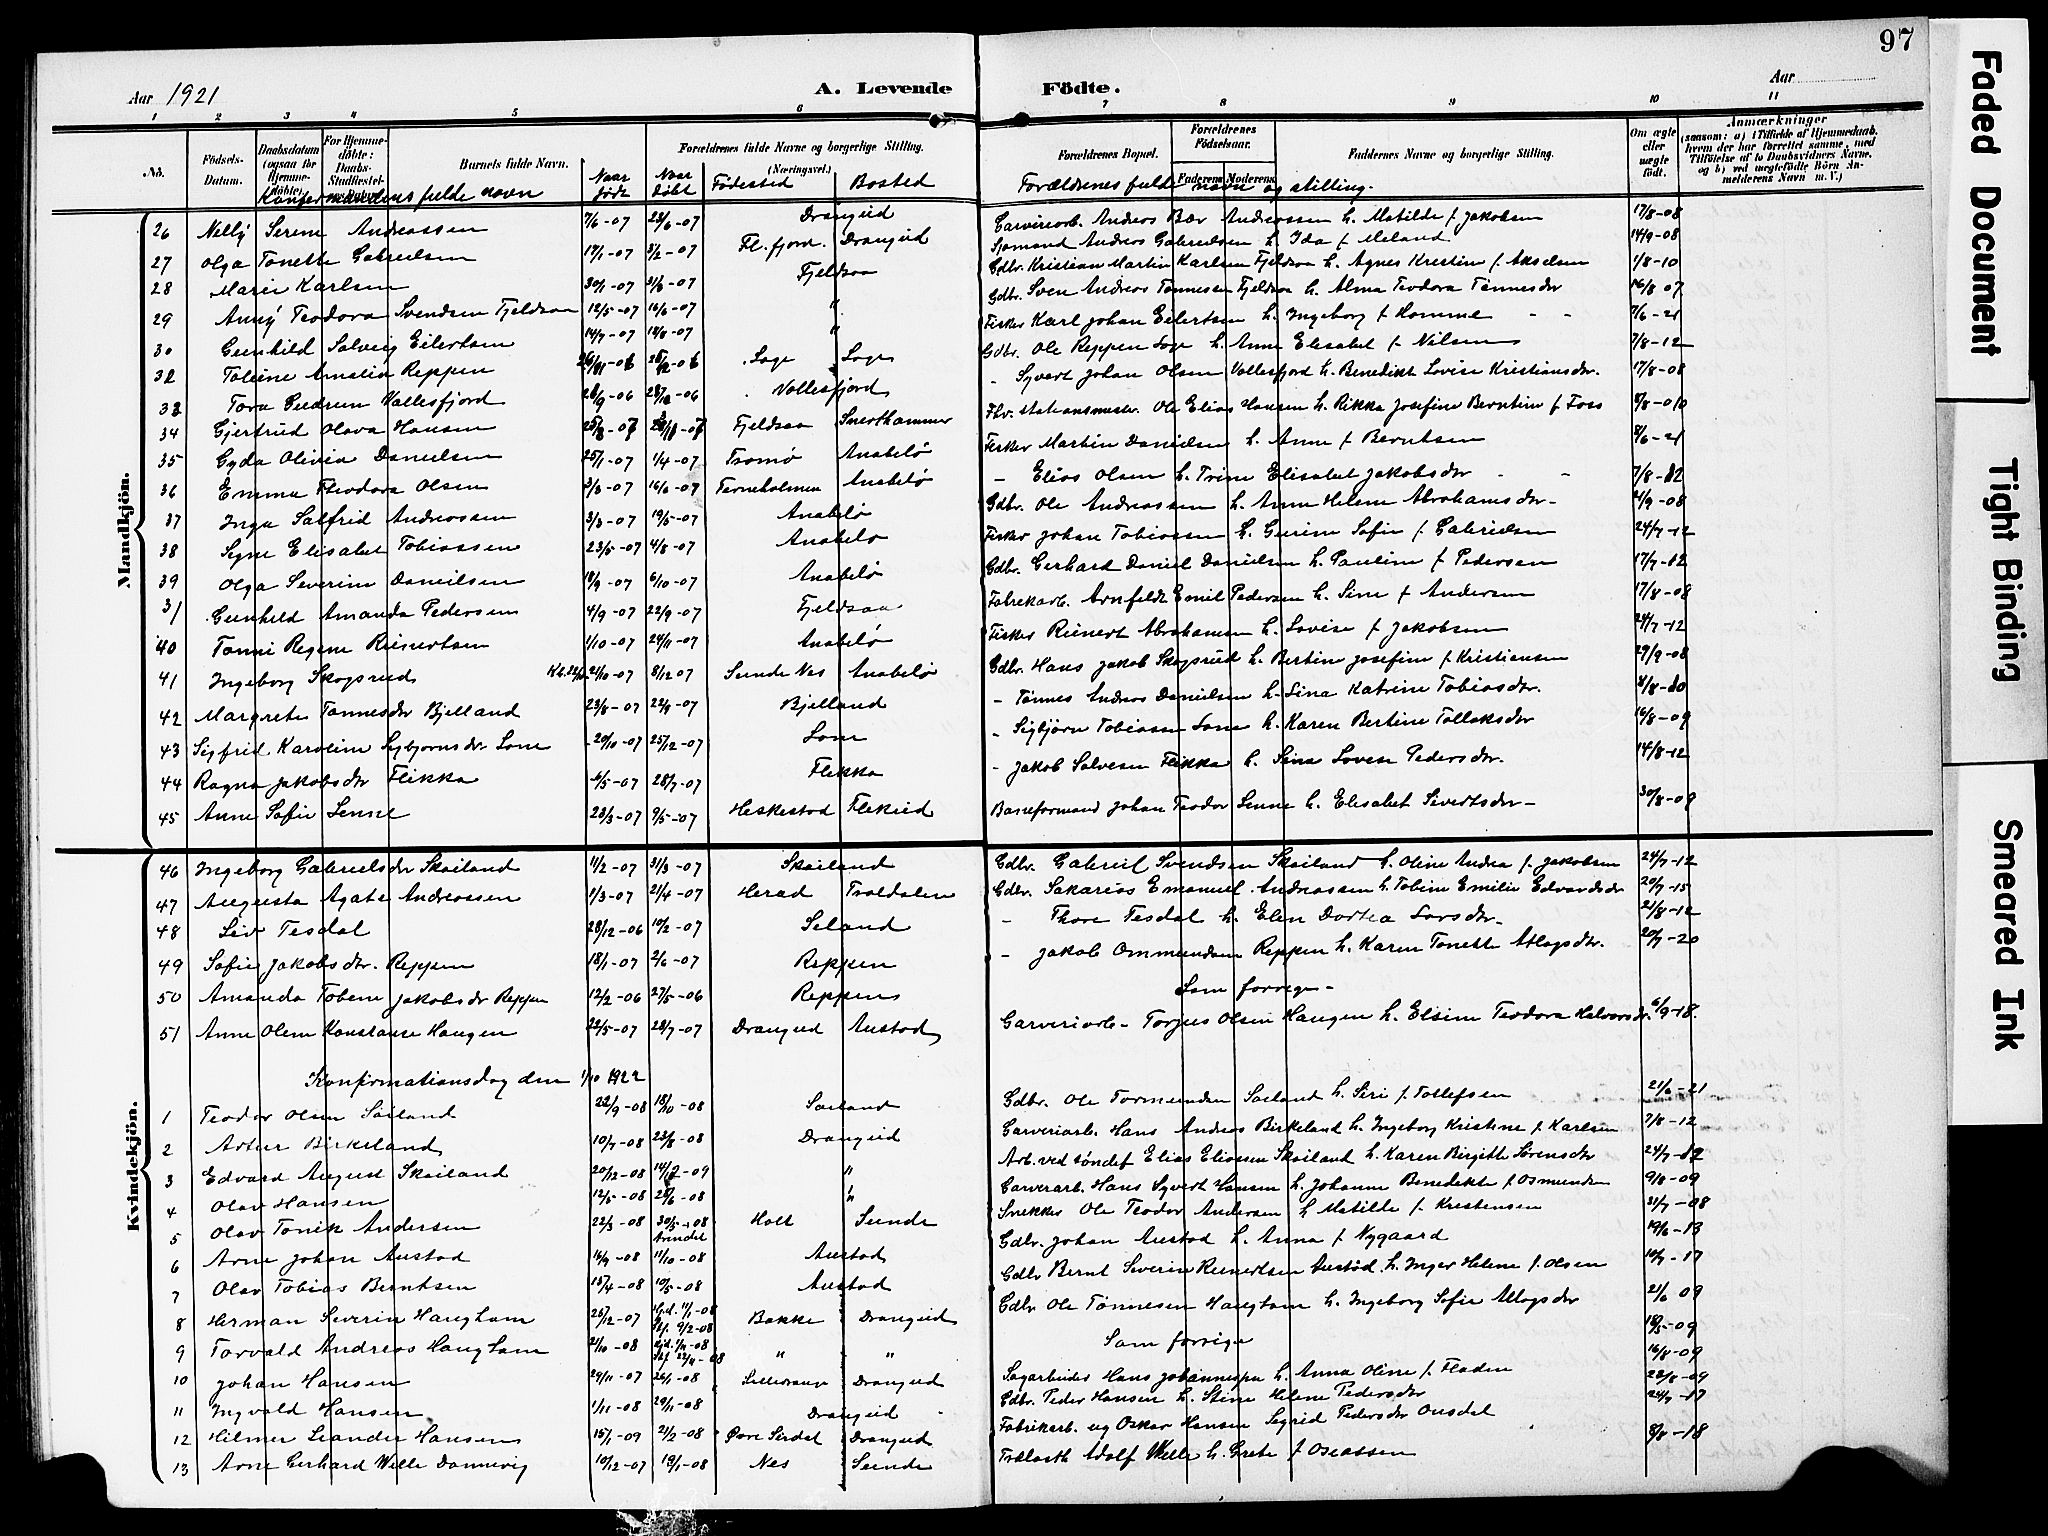 97
Aar 1921
A. Levende Födte.
Aar
1 2 3 4 5 6 7 8 9 10 11
No. Födsels-Datum. Daabsdatum (ogsaa for Hjemme-döbte). For Hjemme-döbte: Daabs-Stadfæstel-sens Datum. Barnets fulde Navn. Forældrenes fulde Navne og borgerlige Stilling. (Næringsvei.) Forældrenes Bopæl. Forældrenes Födselsaar. Faderens Moderens Faddernes Navne og borgerlige Stilling. Om ægte eller uægte födt. Anmærkninger (saasom: a) i Tilfælde af Hjemmedaab, hvem der har forrettet samme, med Tilföielse af to Daabsvidners Navne. og b) ved uægtefödte Börn An-melderens Navn m. V.)
Konfirmandens fulde navn Naar födt Naar döbt Födested Bosted Forældrenes fulde navn og stilling.
Mandkjön.
26 Nelly Serene Andreassen 7/6-07 23/6-07 Drangeid Garveriarb. Andreas Bær Andreassen h. Matilde f. Jakobsen 17/8-08
27 Olga Tonette Gabrielsen 17/1-07 3/2-07 Fl.fjord. Drangeid Sjömand Andreas Gabrielsen h. Ida f. Meland 14/9-08
28 Marie Karlsen 30/1-07 31/3-07 Fjeldsaa Gdbr. Kristian Martin Karlsen Fjeldsaa h. Agnes Kristine f. Akselsen 1/8-10
29 Anny Teodora Svendsen Fjeldsaa 12/5-07 16/6-07 " Gdbr. Sven Andreas Tönnessen Fjeldsaa h. Alma Teodora Tönnesdr 16/8 07
30 Gunhild Solveig Eilertsen 14/7-07 18/8-07 " Fisker Karl Johan Eilertsen h. Ingeborg f. Homme - - 7/6-21
32 Toline Amalia Reppen 26/11-06 26/12-06 Loge Loge Gdbr. Ole Reppen Loge h. Anne Elisabet f. Nilsen 7/8-12
33 Tora Gudrun Vollesfjord 28/9-06 28/12-06 Vollesfjord - Syvert Johan Olsen Vollesfjord h. Benedikt Lovise Kristiansdr. 17/8-08
34 Gjertrud Olava Hansen Fjeldsaa Ole Elias Hansen h. Rikka Josefine Berntine f. Foss
35 Gyda Olivia Danielsen 25/1-07 1/4-07 Tromö Anabelö Fisker Martin Danielsen h. Anne f. Berntsen 8/6-21
36 Emma Theodora Olsen 3/3-07 16/6-07 Terneholmen Anabelö - Elias Olsen h. Trine Elisabet Jakobsdr - - 7/8-12
37 Inga Salfrid Andreassen 3/3-07 19/5-07 Anabelö Gdbr. Ole Andreassen h. Anne Helene Abrahamsdr- 4/9-08
38 Signe Elisabet Tobiassen 23/5-07 4/8-07 Anabelö Fisker Johan Tobiassen h. Gurine Sofie f. Gabrielsen 24/7-12
39 Olga Severine Danielsen 18/9-07 6/10-07 Anabelö Gdbr. Gerhard Daniel Danielsen h. Pauline f. Pedersen 17/7-12
31 Gunhild Amanda Pedersen 4/9-07 22/9-07 Fjeldsaa Fabrikarb. Arnfeldt Emil Pedersen h. Sine f. Andersen 17/8-08
40 Tonni Regine Reinertsen 1/10-07 24/11-07 Anabelö Fisker Reinert Abrahamsen h. Lovise f. Jakobsen 24/7-12
41 Ingeborg Skogsrud 21/10-07 8/12 07 Sunde Nes Anabelö Gdbr. Hans Jakob Skogsrud h. Bertine Josefine f. Kristiansen 29/9-08
42 Margrete Tönnesdr Bjelland 23/8-07 Bjelland - Tönnes Andreas Danielsen h. Lina Katrine Tobiasdr.
43 Sigfrid Karoline Sigbjørnsdr. Lone 20/10-07 25/12-07 Lone - Sigbjörn Tobiassen Lone h. Karen Bertine Tollaksdr 16/8-09
44 Ragna Jakobsdr Flikka 6/5-07 28/7-07 Flikka - Jakob Salvesen Flikka h. Sina Lovise Pedersdr. 14/8-12
45 Anne Sofie Senne 23/3-07 9/5-07 Heskestad Flekeid Baneformand Johan Teodor Senne h. Elisabet Sivertsdr- 30/8-09
Kvindekjön.
46 Ingeborg Gabrielsdr Skailand 11/2-07 31/3-07 Skailand Gdbr. Gabriel Svendsen Skailand h. Oline Andrea f. Jakobsen 24/7-12
47 Augusta Agate Andreassen 1/3-07 21/4-07 Herad Troldalen Gdbr. Sakarias Emanuel Andreassen h. Tobine Emilie Edvardsdr 20/7-15
48 Liv Tesdal 28/12-06 10/2-07 Seland - Thore Tesdal h. Elen Dortea Larsdr- 21/8-12
49 Sofie Jakobsdr. Reppen 18/1-07 2/6-07 Reppen - Jakob Ommundsen Reppen h. Karen Tonette Atlagsdr. 20/7-20
50 Amanda Tobine Jakobsdr Reppen 12/2-06 27/5-06 Reppen Som forrige-
51 Anne Olene Konstanse Haugen 22/5-07 28/7-07 Drangeid Austad Garveriarb- Torjus Olsen Haugen h. Elsine Teodora Halvorsdr. 6/9-18.
Konfirmationsdag den 1/10 1922
1 Teodor Olsen Sæland 22/9-08 18/10-08 Sæland Gdbr. Ole Tormundsen Sæland h. Siri f. Tollefsen 21/6-21
2 Artur Birkeland 10/7-08 23/8-08 Drangeid Garveriarb. Hans Andreas Birkeland h. Ingeborg Kristine f. Karlsen 7/8-12
3 Edvard August Skailand 20/12-08 " Arb. ved töndef Elias Eliassen Skailand h. Karen Birgitte Sörensdr 24/7-12
4 Olav Hansen 12/5-08 28/6-08 " Garverarb. Hans Syvert Hansen h. Johanne Benedikte f. Osmundsen 9/8-09
5 Olav Tonik Andersen 22/3-08 30/5-08 Arendal Holt Sunde Snekker Ole Teodor Andersen h Matilde f. Kristensen 31/7-08
6 Arne Johan Austad 16/9-08 11/10-08 Austad Gdbr. Johan Austad h. Anna f. Nygaard 19/6-13
7 Olav Tobias Berntsen 15/4-08 10/5-08 Austad Gdbr Bernt Severin Reinertsen Austad h. Inger Helene f. Olsen 10/7-17
8 Herman Severin Haugham 26/12-07 Hjd. 1/1-08 Stf. 9/2-08 Bakke Drangeid Gdbr Ole Tönnesen Haugham h. Ingeborg Sofie Atlagsdr 21/6 09
9 Torvald Andreas Haugham 21/10-08 " " Som forrige
10 Johan Hansen 29/11-07 26/1-08 Drangeid Sagarbeider Hans Johannessen h. Anna Oline f. Fladen
11 Ingvald Hansen 1/11-08 29/11-08 Drangeid Gdbr. Peder Hansen h. Stine Helene Pedersdr
12 Hilmer Leander Hansen 15/1-09 21/2-08 Övre Sirdal Drangeid Fabrikarb. ug Oskar Hansen Sigrid Pedersdr Ousdal
13 Arne Gerhard Welle Dannevig 10/12-07 19/1-08 Nes Sunde Adolf Welle h. Grete f. Oseassen 8/8-18
Faded Document
Tight Binding
Smeared Ink